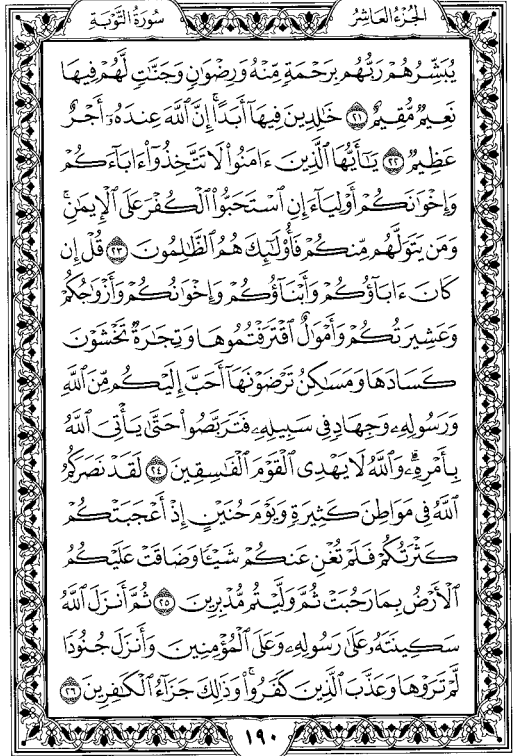 الجزء العاشر
سورة التوبة
يُبَشِّرُهُمْ رَبُّهُم بِرَحْمَةٍ مِّنْهُ وَرِضْوَٰنٍ وَجَنَّٰتٍ لَّهُمْ فِيهَا
نَعِيمٌ مُّقِيمٌ ٢١ خَٰلِدِينَ فِيهَآ أَبَدًا ۚ إِنَّ ٱللَّهَ عِندَهُۥٓ أَجْرٌ
عَظِيمٌ ٢٢ يَٰٓأَيُّهَا ٱلَّذِينَ ءَامَنُوا۟ لَا تَتَّخِذُوٓا۟ ءَابَآءَكُمْ
وَإِخْوَٰنَكُمْ أَوْلِيَآءَ إِنِ ٱسْتَحَبُّوا۟ ٱلْكُفْرَ عَلَى ٱلْإِيمَٰنِ ۚ
وَمَن يَتَوَلَّهُم مِّنكُمْ فَأُو۟لَٰٓئِكَ هُمُ ٱلظَّٰلِمُونَ ٢٣ قُلْ إِن
كَانَ ءَابَآؤُكُمْ وَأَبْنَآؤُكُمْ وَإِخْوَٰنُكُمْ وَأَزْوَٰجُكُمْ
وَعَشِيرَتُكُمْ وَأَمْوَٰلٌ ٱقْتَرَفْتُمُوهَا وَتِجَٰرَةٌ تَخْشَوْنَ
كَسَادَهَا وَمَسَٰكِنُ تَرْضَوْنَهَآ أَحَبَّ إِلَيْكُم مِّنَ ٱللَّهِ
وَرَسُولِهِۦ وَجِهَادٍ فِى سَبِيلِهِۦ فَتَرَبَّصُوا۟ حَتَّىٰ يَأْتِىَ ٱللَّهُ
بِأَمْرِهِۦ ۗ وَٱللَّهُ لَا يَهْدِى ٱلْقَوْمَ ٱلْفَٰسِقِينَ ٢٤ لَقَدْ نَصَرَكُمُ
ٱللَّهُ فِى مَوَاطِنَ كَثِيرَةٍ وَيَوْمَ حُنَيْنٍ إِذْ أَعْجَبَتْكُمْ
كَثْرَتُكُمْ فَلَمْ تُغْنِ عَنكُمْ شَيْـًٔا وَضَاقَتْ عَلَيْكُمُ
ٱلْأَرْضُ بِمَا رَحُبَتْ ثُمَّ وَلَّيْتُم مُّدْبِرِينَ ٢٥ ثُمَّ أَنزَلَ ٱللَّهُ
سَكِينَتَهُۥ عَلَىٰ رَسُولِهِۦ وَعَلَى ٱلْمُؤْمِنِينَ وَأَنزَلَ جُنُودًا
لَّمْ تَرَوْهَا وَعَذَّبَ ٱلَّذِينَ كَفَرُوا۟ ۚ وَذَٰلِكَ جَزَآءُ ٱلْكَٰفِرِينَ ٢٦
١٩٠